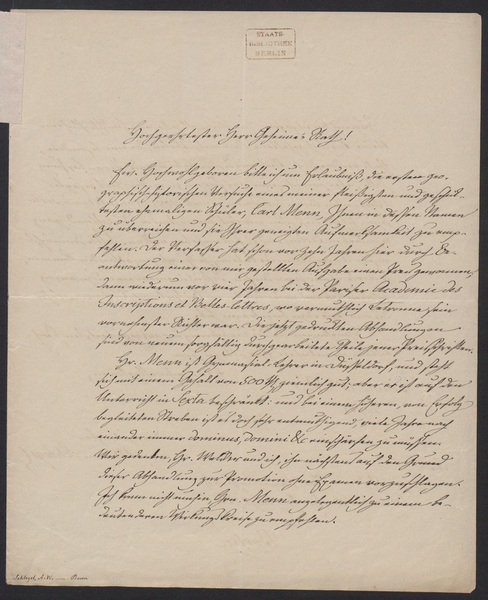 STAATS
BIBLIOTHEK
BERLIN
Hochgeehrtester Herr Geheimer Rath!
Ew. Hochwohlgeboren bitte ich um Erlaubniß, die ersten geo-
graphisch-historischen Versuche eines meiner fleißigsten und geschick-
testen ehemaligen Schüler, Carl Menn, Ihnen in dessen Namen
zu überreichen und sie Ihrer geneigten Aufmerksamkeit zu emp-
fehlen. Der Verfasser hat schon vor zehn Jahren hier durch Be-
antwortung einer von mir gestellten Aufgabe einen Preis gewonnen,
dann wiederum vor vier Jahren bei der Pariser Académie des
Inscriptions et Belles-lettres, wo vermuthlich Letronne sein
vornehmster Richter war. Die jetzt gedruckten Abhandlungen
sind von neuem sorgfältig durchgearbeitete Theile jener Preisschriften.
Hr. Menn ist Gymnasial-Lehrer in Düsseldorf, und steht
sich mit einem Gehalt von 500 ziemlich gut; aber er ist auf den
Unterricht in Sexta beschränkt: und bei einem höheren, von Erfolg
begleiteten Streben ist es doch sehr entmuthigend, viele Jahre nach
einander immer dominus, domini &c einschärfen zu müssen.
Wir gedenken, Hr. Welcker und ich, ihn nächstens auf den Grund
dieser Abhandlung zur Promotion ohne Examen vorzuschlagen.
Ich kann nicht umhin Hrn. Menn angelegentlich zu einem be-
deutenderen Wirkungskreise zu empfehlen.
Schlegel, A. W.